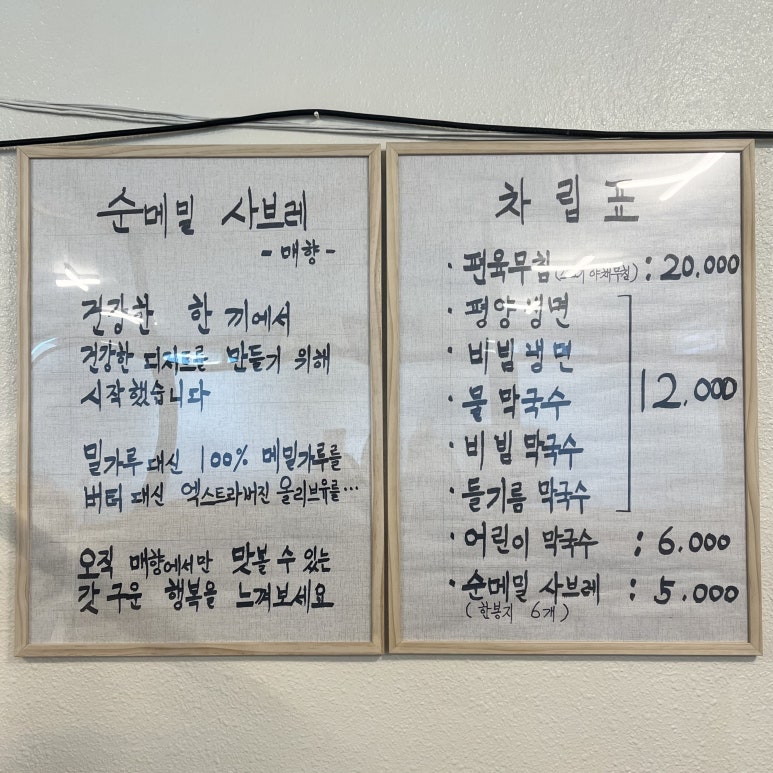 순메밀 사브레
- 매향 -
건강한 한 끼에서
건강한 디저트를 만들기 위해
시작했습니다
밀가루 대신 100% 메밀가루를
버터 대신 엑스트라버진 올리브유를...
오직 매향에서만 맛볼 수 있는
갓 구운 행복을 느껴보세요
차림표
· 편육무침 ( 야채무침) : 20.000
· 평양 냉면
· 비빔 냉면
· 물 막국수
· 비빔 막국수
· 들기름 막국수
12.000
· 어린이 막국수 : 6.000
· 순메밀 사브레 : 5.000
(한봉지 6개)